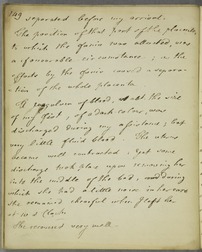 149
separated before my arrival.
The position of that part of the placenta
to which the funis was attached, was
a favourable circumstance; as the
efforts by the funis could separa-
-tion of the whole placenta
A coagulum of blood, about the size
of my fist, of a dark colour, was
discharged during my assistance; but
very little fluid blood. The uterus
became well contracted; yet some
discharge took place upon removing her
into the middle of the bed, and during
which she had a little noise in her ears
She remained cheerful when I left her
at
She recovered very well.